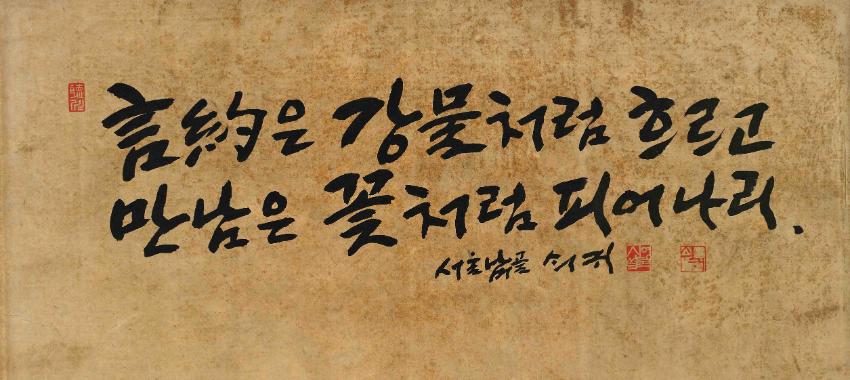 言約은 강물처럼 흐르고
만남은 꽃처럼 피어나리.
서초